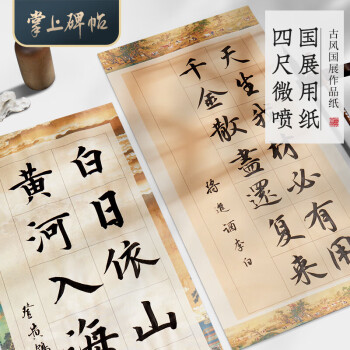 掌上碑帖
古风国展作品纸
国展用纸
四尺微喷
天生我材必有用
千金散盡還复来
李白
白日依山
黄河入海